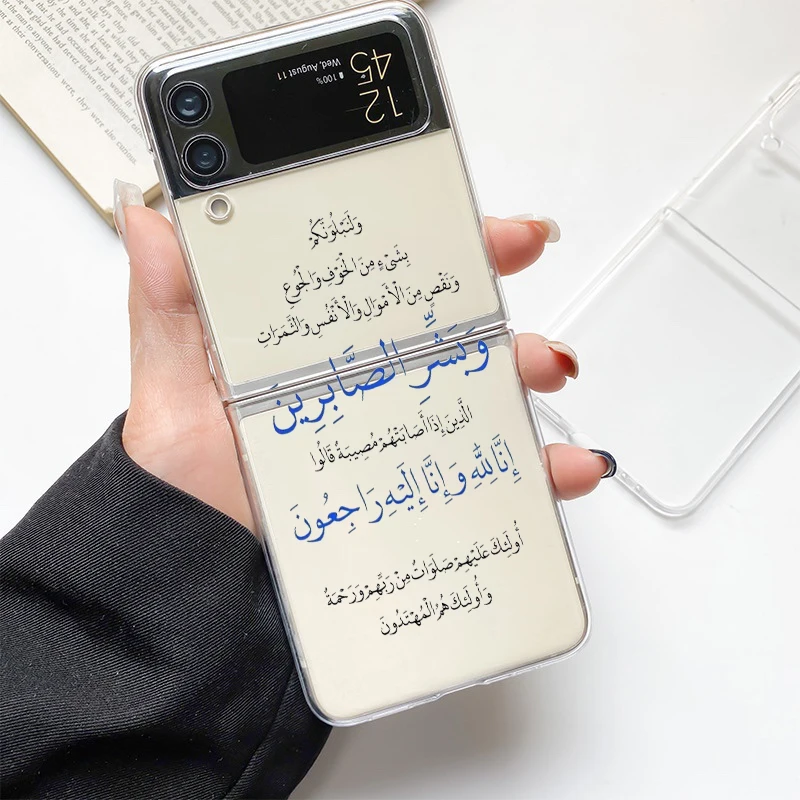 12
45
100%
Wed, August 11
وَلَنَبْلُوَنَّكُمْ
بِشَيْءٍ مِنَ الْخَوْفِ وَالْجُوعِ
وَنَقْصٍ مِنَ الْأَمْوَالِ وَالْأَنْفُسِ وَالثَّمَرَاتِ
وَبَشِّرِ الصَّابِرِينَ
الَّذِينَ إِذَا أَصَابَتْهُمْ مُصِيبَةٌ قَالُوا
إِنَّا لِلَّهِ وَإِنَّا إِلَيْهِ رَاجِعُونَ
أُولَئِكَ عَلَيْهِمْ صَلَوَاتٌ مِنْ رَبِّهِمْ وَرَحْمَةٌ
وَأُولَئِكَ هُمُ الْمُهْتَدُونَ